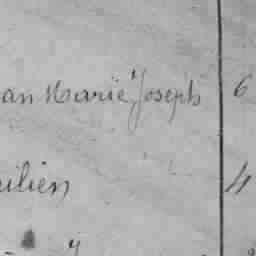 an Marie Joseph 6
ilien 4